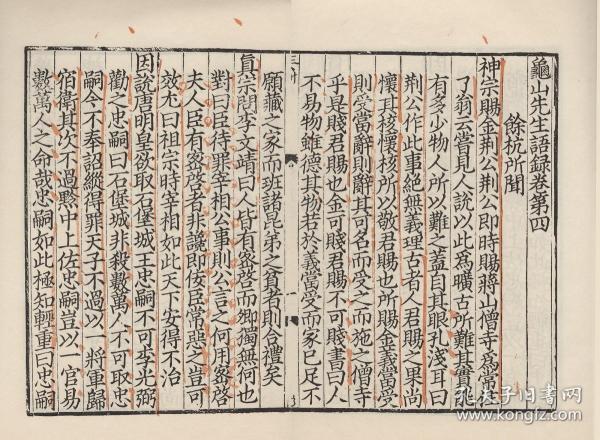 龜山先生語録卷第四
餘杭所聞
神宗賜金荆公荆公即時賜蔣山僧寺爲常住
了翁云嘗見人說以此爲曠古所難其實能
有多少物人所以難之蓋自其眼孔淺耳曰
荆公作此事絕無義理古者人君賜之果尚
懷其核懷核所以敬君賜也所賜金義當受
則受當辭則辭其可名而受之而施之僧寺
乎是賤君賜也金可賤君賜不可賤書曰人
不易物雖德其物若於義當受而家已足不
願藏之家而班諸昆弟之貧者則合禮矣
真宗問李文靖曰人皆有密啓而卿獨無何也
對曰臣待罪宰相公事則公言之何用密啓
夫人臣有密啓者非讒即佞臣常惡之豈可
效尤曰祖宗時宰相如此天下安得不治
因說唐明皇欲取石堡城王忠嗣不可李光弼
勸之忠嗣曰石堡城非殺數萬人不可取忠
嗣今不奉詔縱得罪天子不過以一將軍歸
宿衛其次不過黔中上佐忠嗣豈以一官易
數萬人之命哉忠嗣如此極知輕重曰忠嗣
孔夫子旧书网
www.kongfz.com